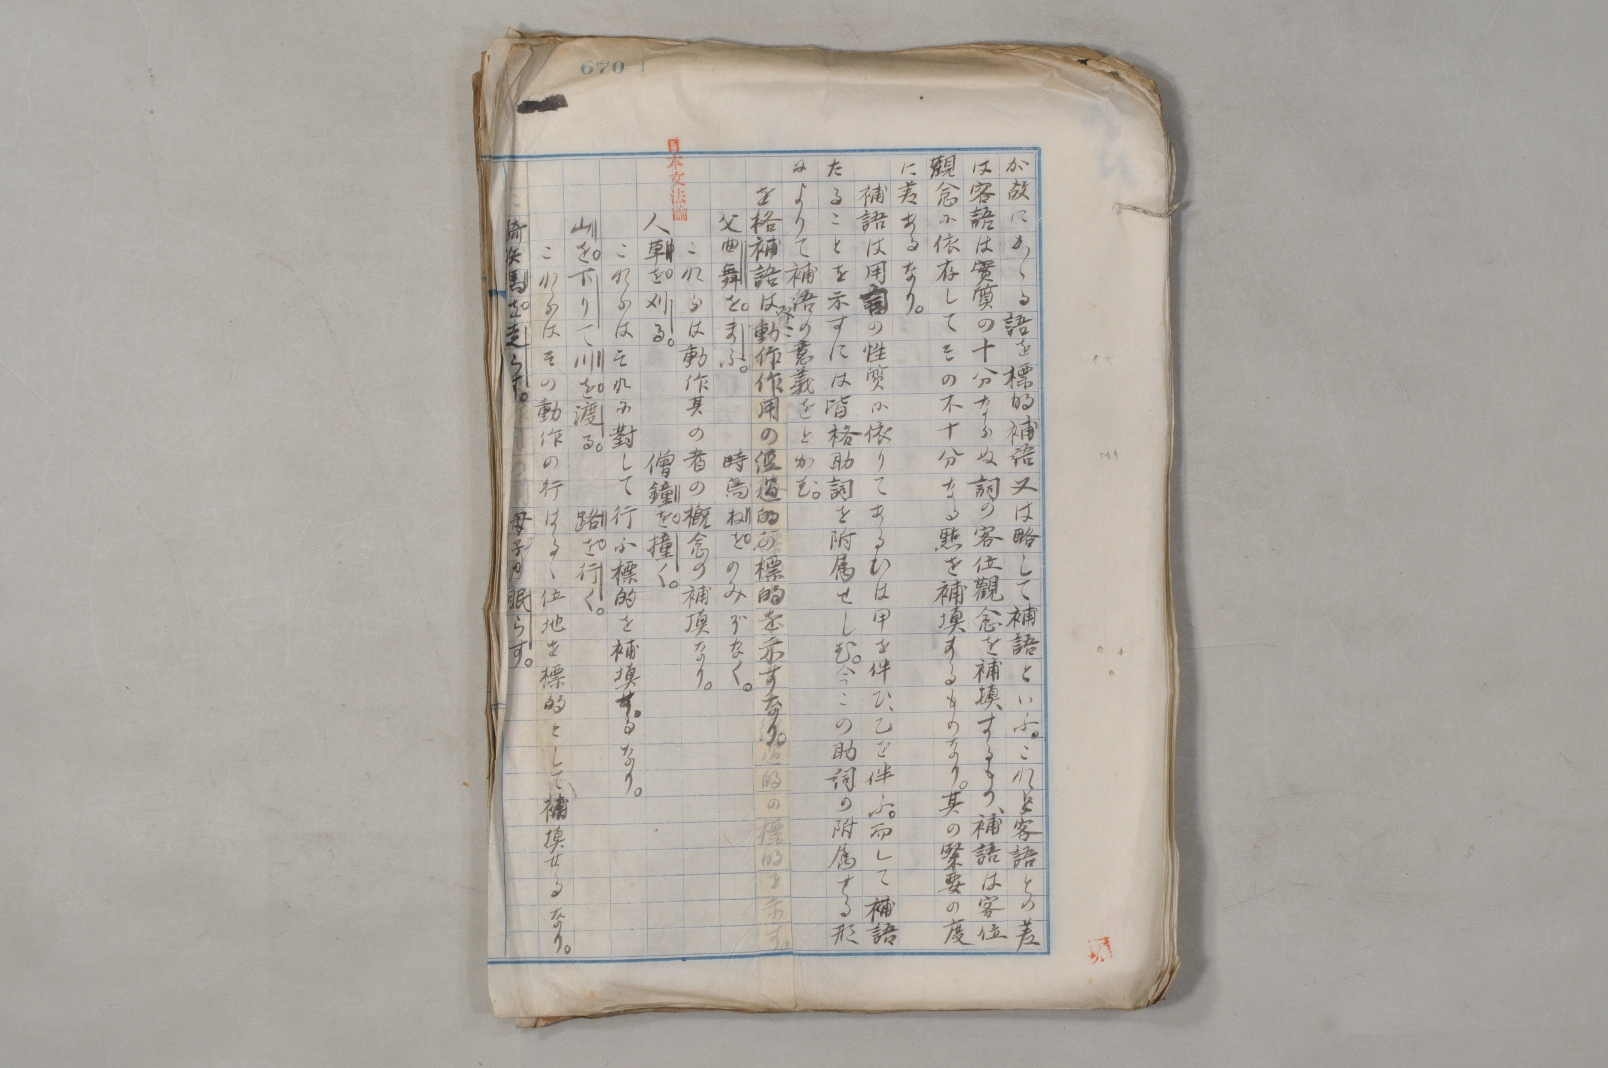 が故にかゝる語を標的補語又は略して補語といふ。これと客語との差
は客語は実質の十分ならぬ詞の客位観念を補填するもの、補語は客位
観念に依存してその不十分なる點を補填するものなり。其の緊要の度
に差あるなり。
補語は用言の性質に依りてあるひは甲を伴ひ、乙を伴ふ。而して補語
たることを示すには皆格助詞を附属せしむ。今この助詞の附属する形
によりて補語の意義をとかむ。
を格補語は動作作用の 的標的を示すなり。
父曲舞をまふ。 時鳥ねをのみぞなく。
これらは動作其の者の概念の補填なり。
人草を刈る。 僧鐘を撞く。
これらはそれに對して行ふ標的を補填せるなり。
山を下りて川を渡る。 路を行く。
これらはその動作の行はるゝ位地を標的として補填せるなり。
馬を走らす。 母子を眠らす。
日本文法論
670